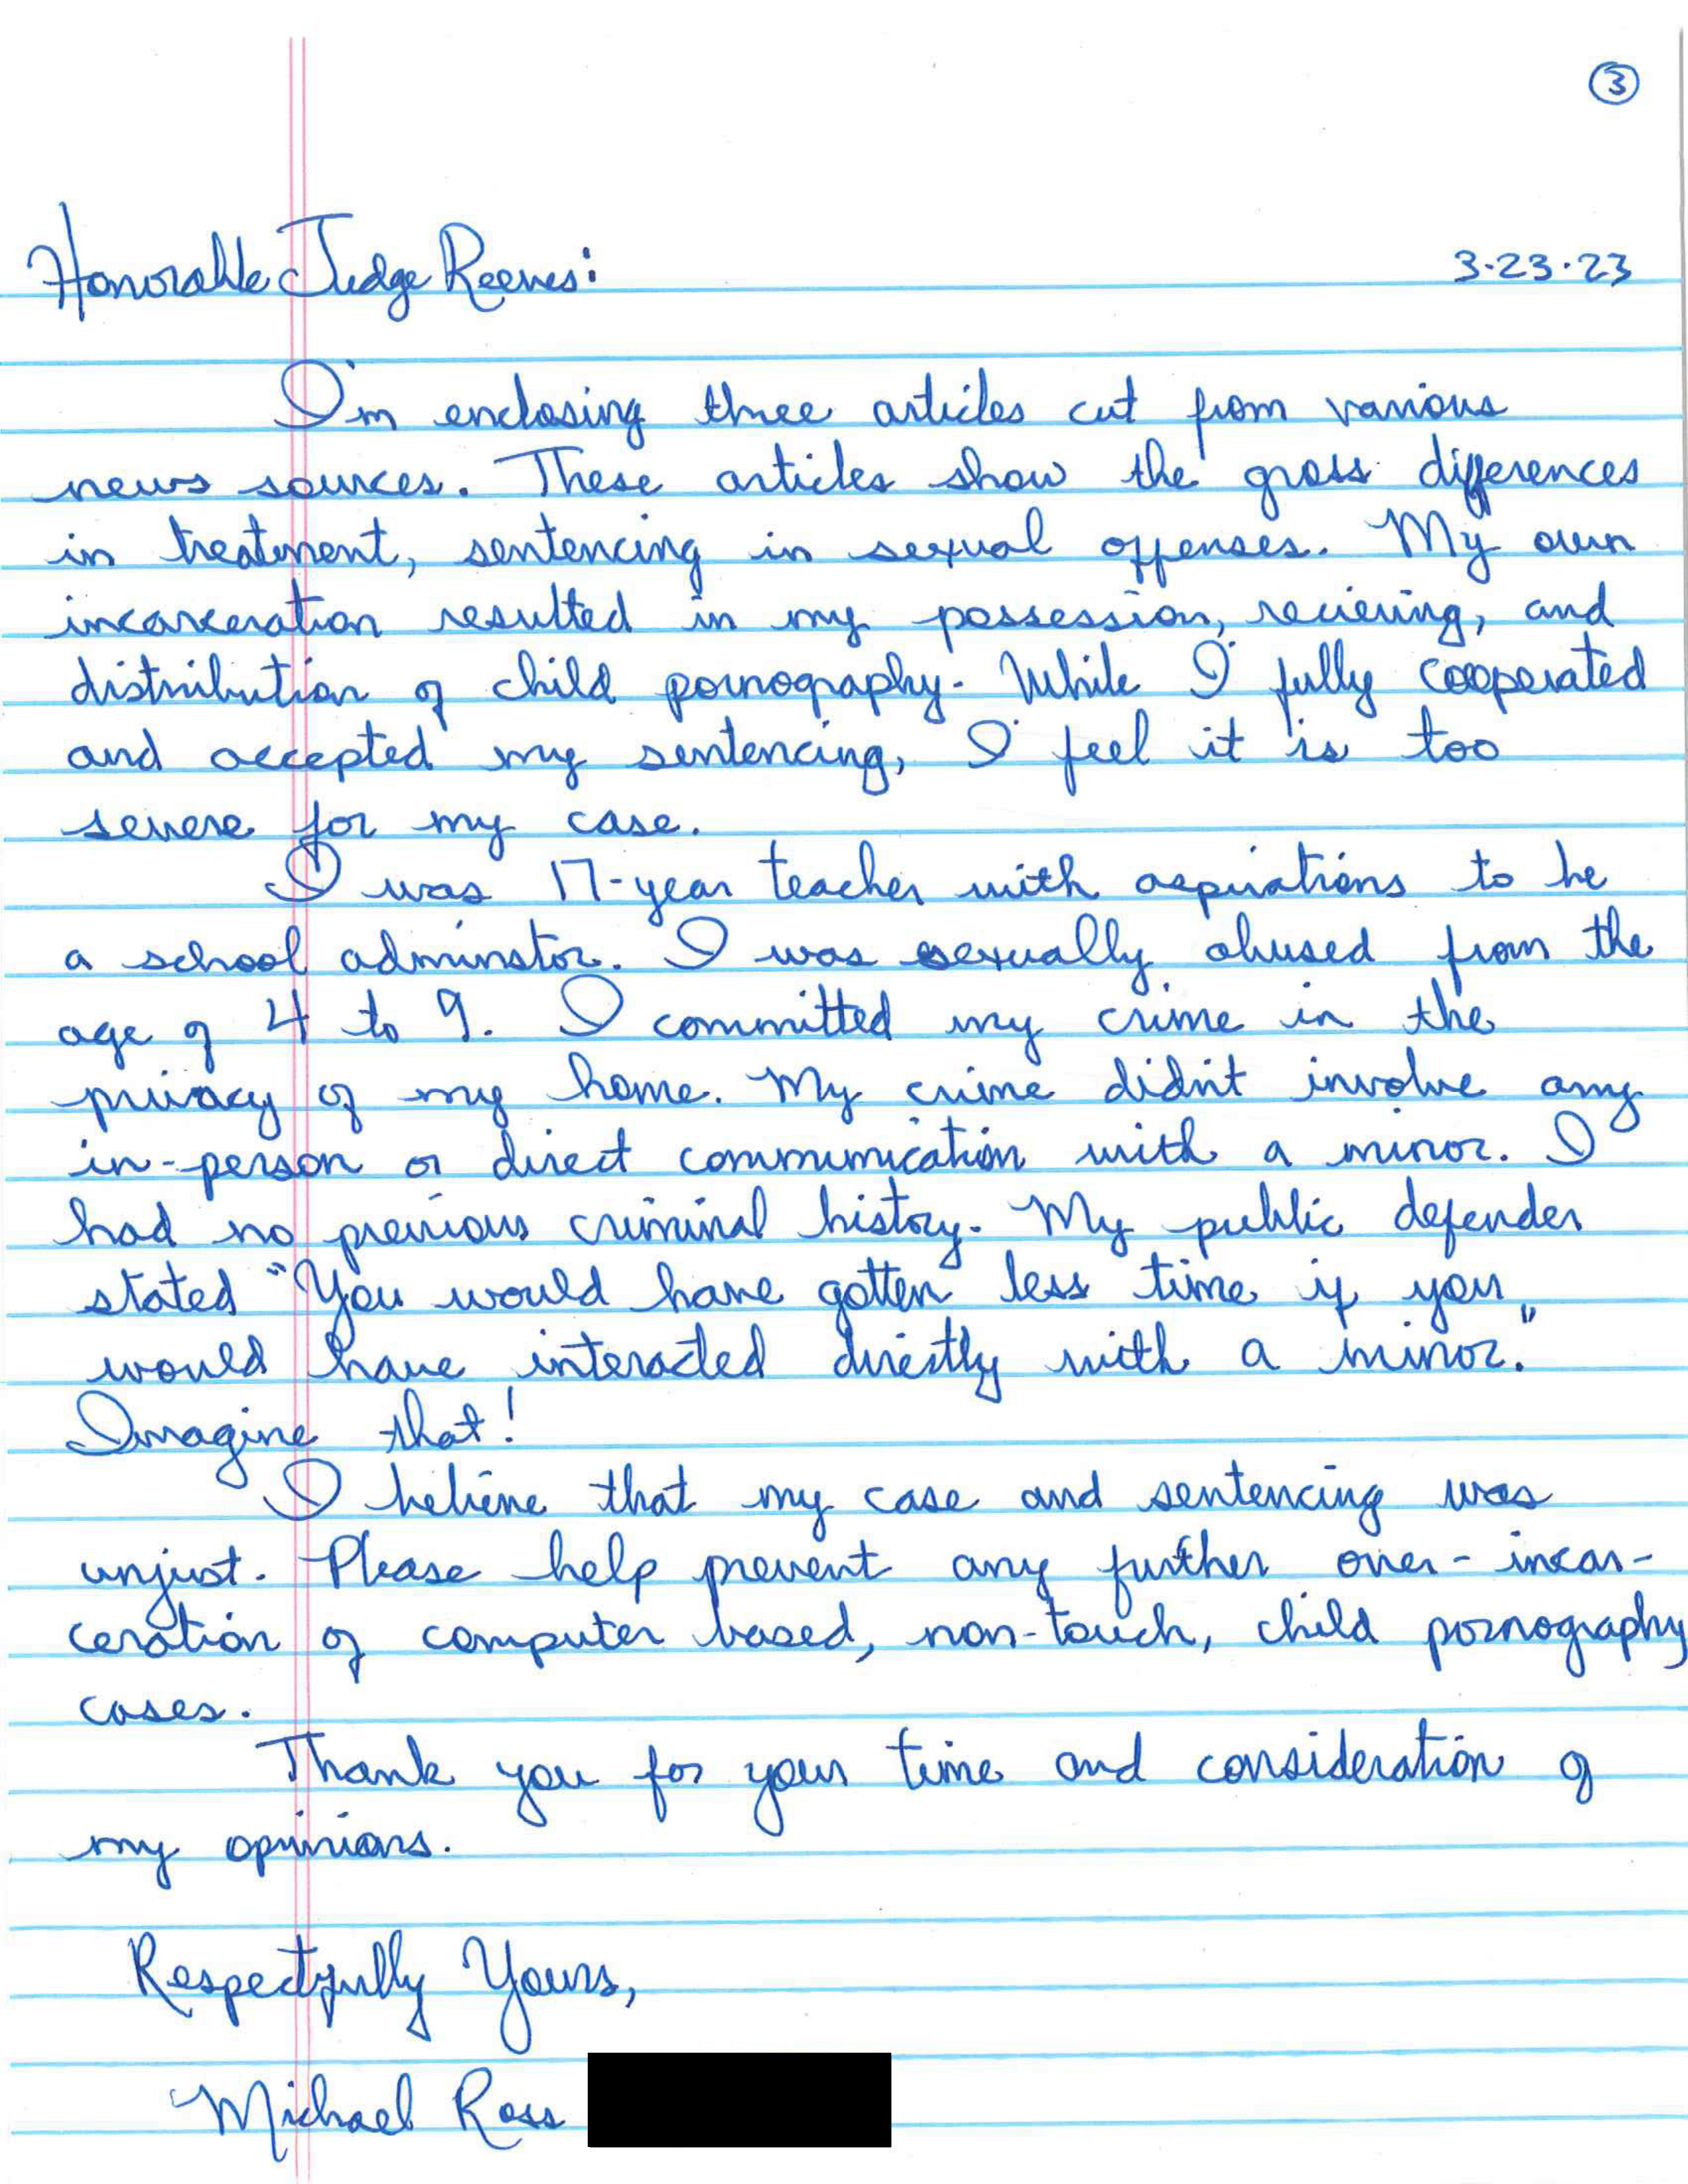 3
Honorable Judge Reeves: 3-23-23
I'm enclosing three articles cut from various
news sources. These articles show the gross differences
in treatment, sentencing in sexual offenses. My own
incarceration resulted in my possession, recieving, and
distribution of child pornography. While I fully cooperated
and accepted my sentencing, I feel it is too
severe for my case.
I was 17-year teacher with aspirations to be
a school adminstor. I was sexually abused from the
age of 4 to 9. I committed my crime in the
privacy of my home. My crime didn't involve any
in-person or direct communication with a minor. I
had no previous criminal history. My public defender
stated "You would have gotten less time if you
would have interacted directly with a minor."
Imagine that!
I believe that my case and sentencing was
unjust. Please help prevent any further over-incar-
ceration of computer based, non-touch, child pornography
cases.
Thank you for your time and consideration of
my opinions.
Respectfully Yours,
Michael Ross